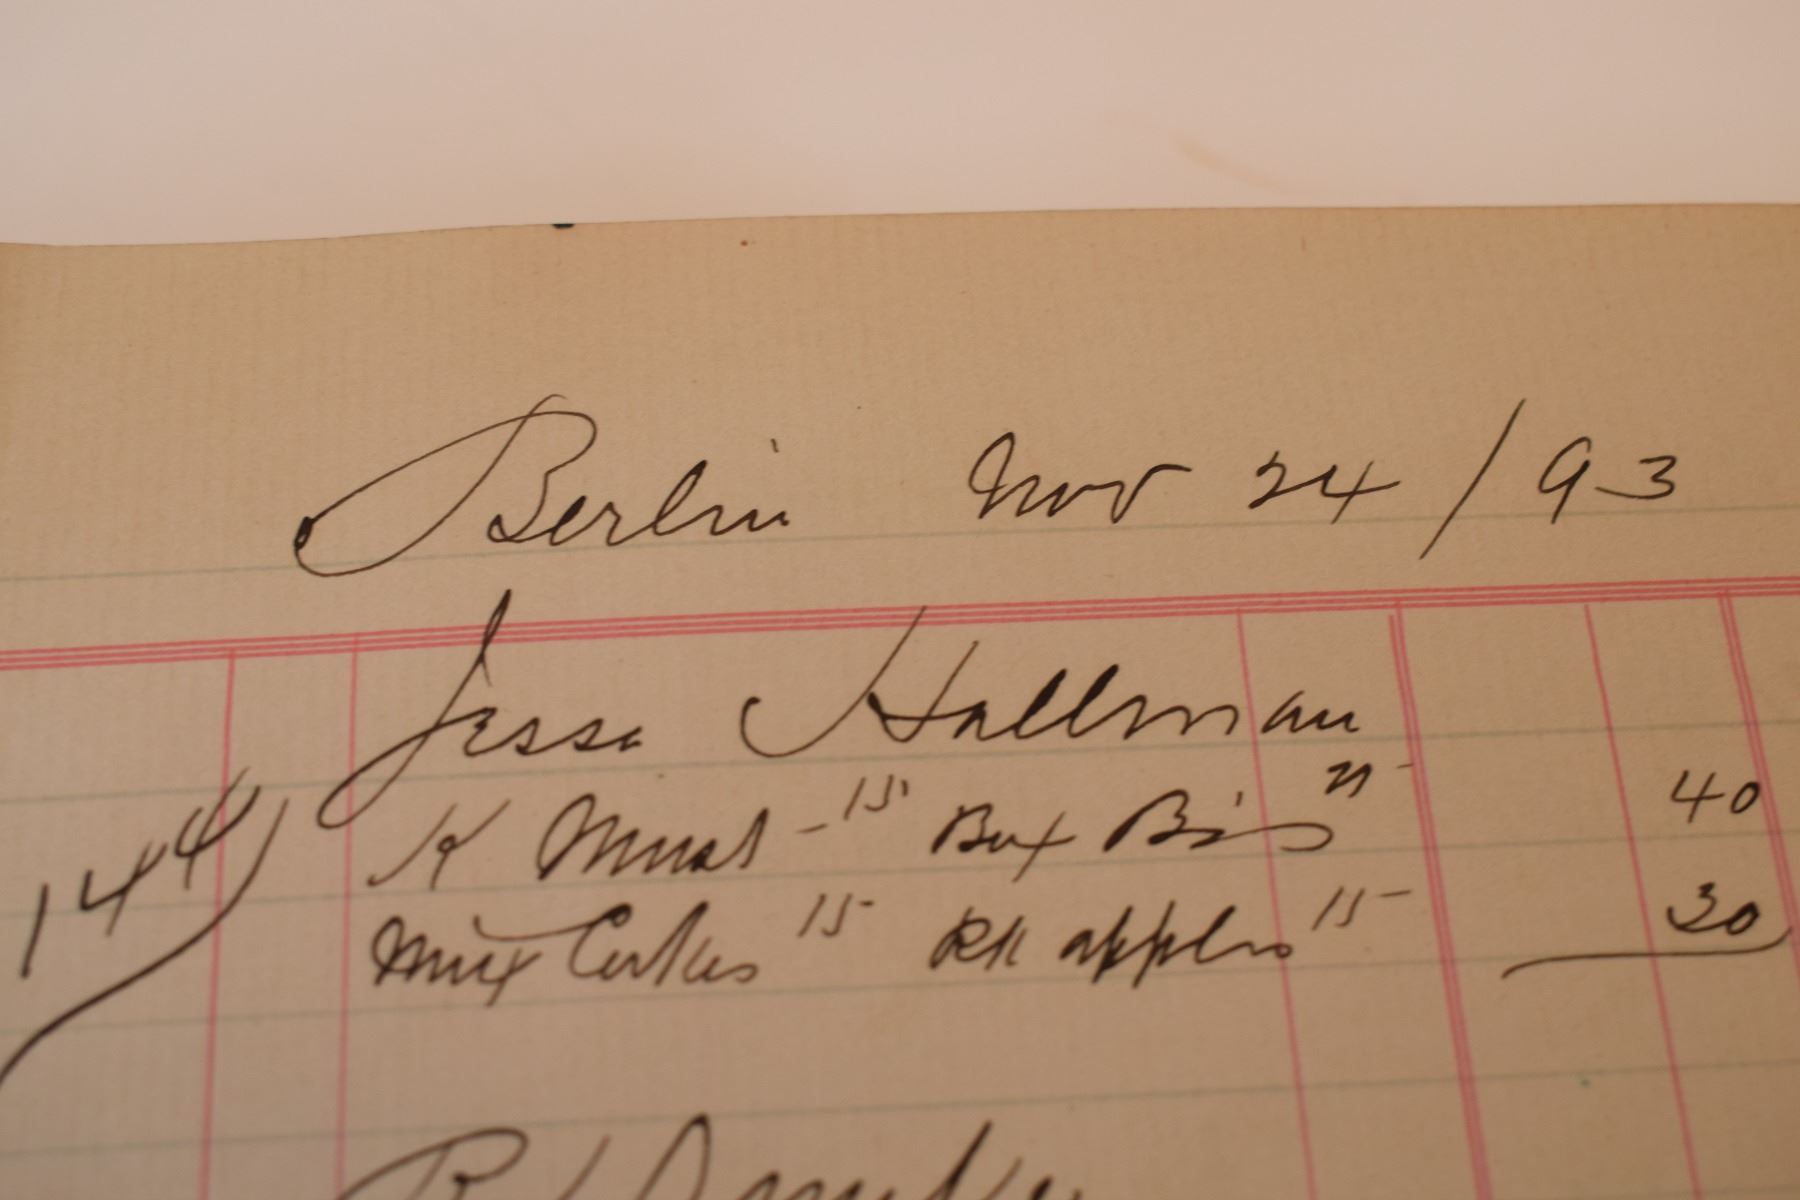 Berlin Nov 24/93
Jesse Hallman
144
K Must - 15 Box Bis 25 - 40
Mix Cakes 15 - apples 15 - 30